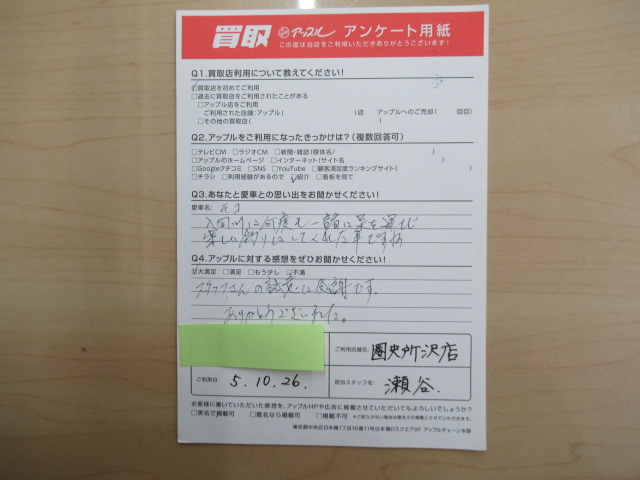 買取 アップル アンケート用紙
この度は当店をご利用いただきありがとうございます!
Q1.買取店利用について教えてください!
☑買取店を初めてご利用
□過去に買取店をご利用されたことがある
□アップル店をご利用
ご利用された店舗:アップル( )店 アップルへのご売却( 回目)
□その他の買取店( )
Q2.アップルをご利用になったきっかけは?(複数回答可)
□テレビCM □ラジオCM □新聞・雑誌(媒体名/ )
□アップルのホームページ □インターネット(サイト名 )
□Googleクチコミ □SNS □YouTube □顧客満足度ランキングサイト( )
□チラシ □利用経験があるので ☑紹介 □看板を見て
Q3.あなたと愛車との思い出をお聞かせください!
愛車名:
入間川に何度も一緒に足を運び
楽しい釣りにしてくれた車ですね
Q4.アップルに対する感想をぜひお聞かせください!
☑大満足 □満足 □もう少し □不満
スタッフさんの誠意に感謝です。
ありがとうございました。
ご利用店舗名: 圏央所沢店
ご利用日 5.10.26.
担当スタッフ名: 瀬谷.
お客様に書いていただいた感想を、アップルHPや広告に掲載させていただいてもよろしいでしょうか?
□実名で掲載可 □匿名なら掲載可 □掲載不可 ※ご記入がない場合は匿名での掲載とさせていただきます。
東京都中央区日本橋1丁目16番11号日本橋Dスクエア8F アップルチェーン本部